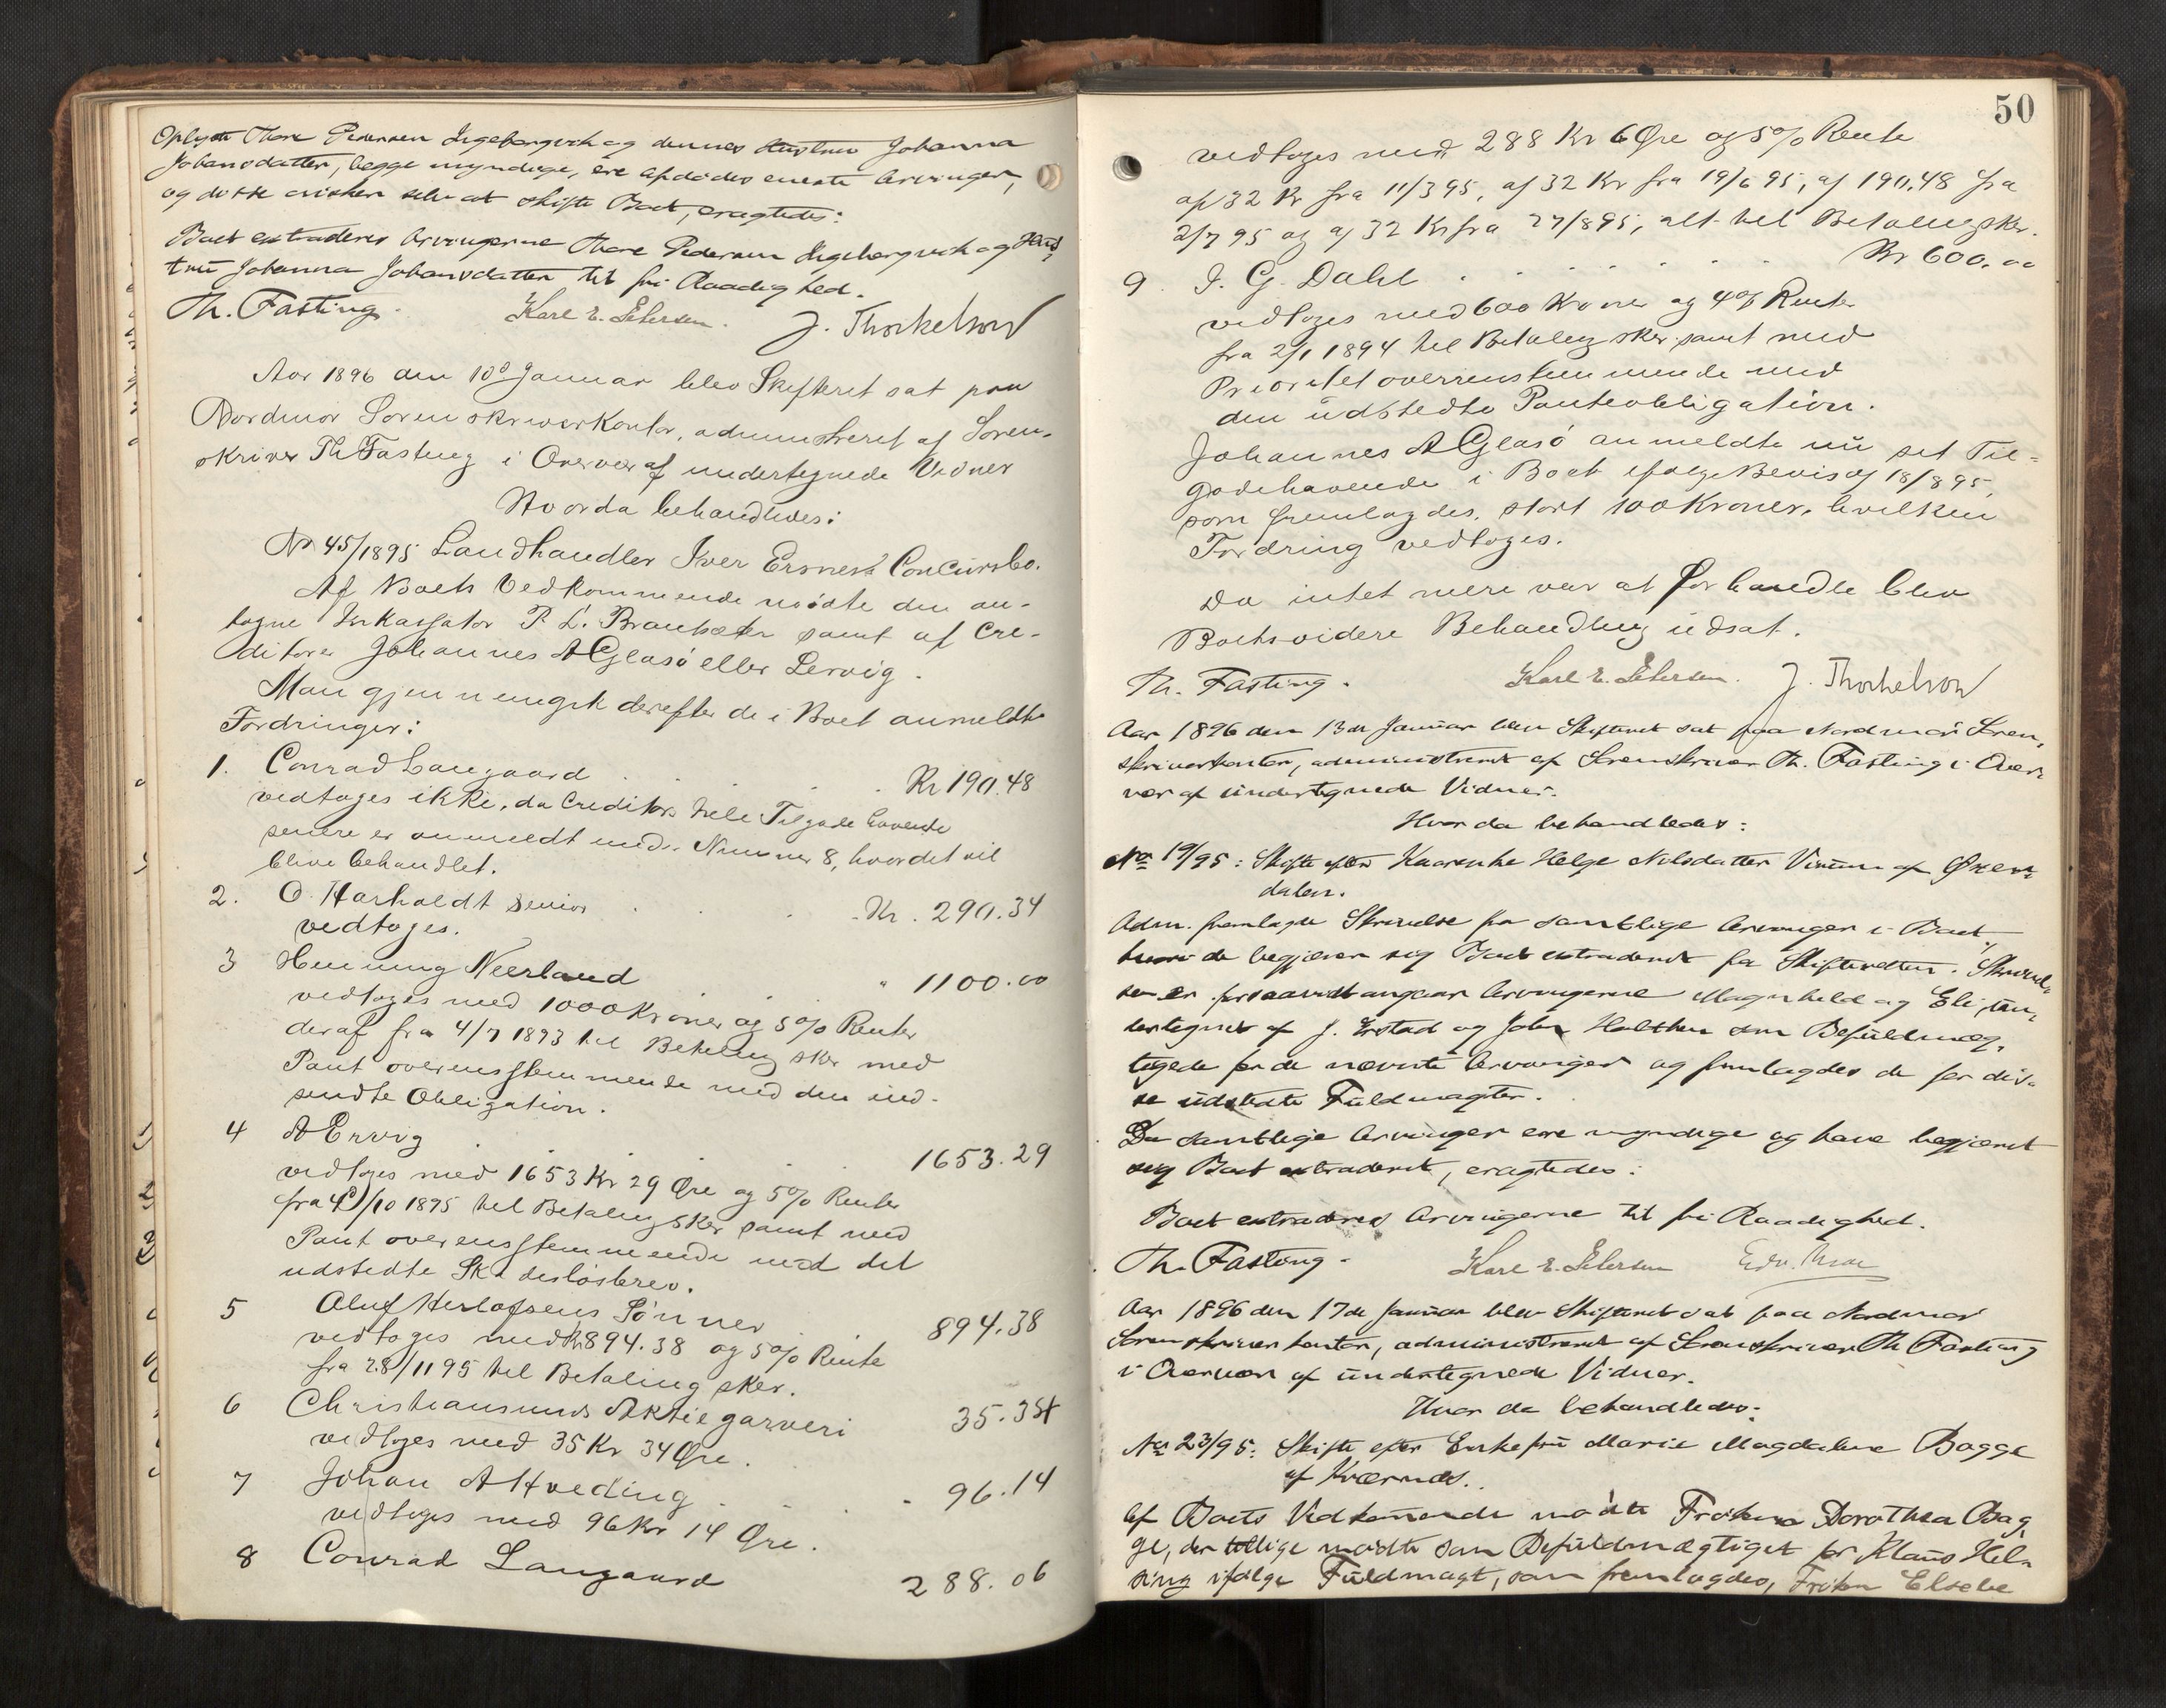 Oplyste Thore Pedersen Ingebergvik og dennes Hustru Johanna
Johansdatter, begge myndige, ere afdødes eneste Arvinger,
og disse ønsker selv at skifte Boet, eragtedes:
Boet extraderes Arvingerne Thore Pedersen Ingebergvik og Hus-
tru Johanna Johansdatter til fri Raadighed.
Th. Fasting. Karl E. Petersen. J. Thorkelson
Aar 1896 den 10d Januar blev Skifteret sat paa
Nordmør Sorenskriverkontor, administreret af Soren-
skriver Th Fasting i Overvær af undertegnede Vidner
Hvorda behandledes:
No 45/1895 Landhandler Iver Ersnes's Concursbo.
Af Boets Vedkommende mødte den an-
tagne Inkassator P. L. samt af Cre-
ditorer Johannes A Glasø eller Lervig.
Man gjennemgik derefter de i Boet anmeldte
Fordringer:
1. Conrad Langaard . . . Kr 190.48
vedtoges ikke, da Creditors hele Tilgodehavende
senere er anmeldt under Nummer 8, hvor det vil
blive behandlet.
2. O. Harholdt senior . . . Kr. 290.34
vedtoges.
3 Henning Neerland " 1100.00
vedtoges med 1000 Kroner og 5% Renter
deraf fra 4/7 1893 til Betaling sker med
Pant overensstemmende med den ind-
sendte Obligation.
4 A Ervig . . . 1653.29
vedtoges med 1653 Kr 29 Øre og 5% Renter
fra /10 1895 til Betaling sker samt med
Pant overensstemmende med det
udstedte Skadesløsbrev.
5 Oluf Herlofsens Sønner . . 894.38
vedtoges med Kr 894.38 og 5% Rente
fra 28/11 95 til Betaling sker.
6 Christiansunds Aktiegarveri 35.34
vedtoges med 35 Kr 34 Øre.
7 Johan A Hveding . . . 96.14
vedtoges med 96 Kr 14 Øre.
8 Conrad Langaard 288.06
50
vedtoges med 288 Kr 6 Øre og 5% Rente
af 32 Kr fra 11/3 95, af 32 Kr fra 19/6 95, af 190.48 fra
2/7 95 og af 32 Kr fra 27/8 95, alt til Betaling sker.
9. J. G. Dahl . . . . . . Kr 600.00
vedtoges med 600 Kroner og 4% Renter
fra 2/1 1894 til Betaling sker samt med
Prioritet overensstemmende med
den udstedte Panteobligation.
Johannes A Glasø anmeldte nu sit Til-
godehavende i Boet ifølge Bevis af 18/8 95,
som fremlagdes, stort 100 Kroner, hvilken
Fordring vedtoges.
Da intet mere var at forhandle blev
Boets videre Behandling udsat.
Th. Fasting. Karl E. Petersen. J. Thorkelson
Aar 1896 den 13de Januar blev Skifteret sat paa Nordmør Soren-
skriverkontor, administreret af Sorenskriver Th. Fasting i Over-
vær af undertegnede Vidner.
Hvor da behandledes:
No 19/95: Skifte efter Kaarenke Helge Nilsdatter Vinum af Øxen-
dalen.
Adm. fremlagde Skrivelse fra samtlige Arvinger i Boet,
hvori de begjærer sig Boet extraderet fra Skifteretten. Skrivel-
sen er forsaavidt angaar Arvingerne Magnhild og Eli, un-
dertegnet af J. Erstad og John Halsthen som Befuldmæg-
tigede for de nævnte Arvinger og fremlagdes de for dis-
se udstedte Fuldmagter.
Da samtlige Arvinger ere myndige og have begjæret
sig Boet extraderet, eragtedes:
Boet extraderes Arvingerne til fri Raadighed.
Th. Fasting. Karl E. Petersen Edv. Moe
Aar 1896 den 17de Januar blev Skifteret sat paa Nordmør
Sorenskriverkontor, administreret af Sorenskriver Th Fasting
i Overvær af undertegnede Vidner.
Hvor da behandledes:
No 23/95: Skifte efter Enkefru Marie Magdalene Bagge
af Kværnes.
Af Boets Vedkommende mødte Frøken Dorothea Bag-
ge, der tillige mødte som Befuldmægtiget for Klaus Hel-
sing ifølge Fuldmagt, som fremlagdes, Frøken Elsebe